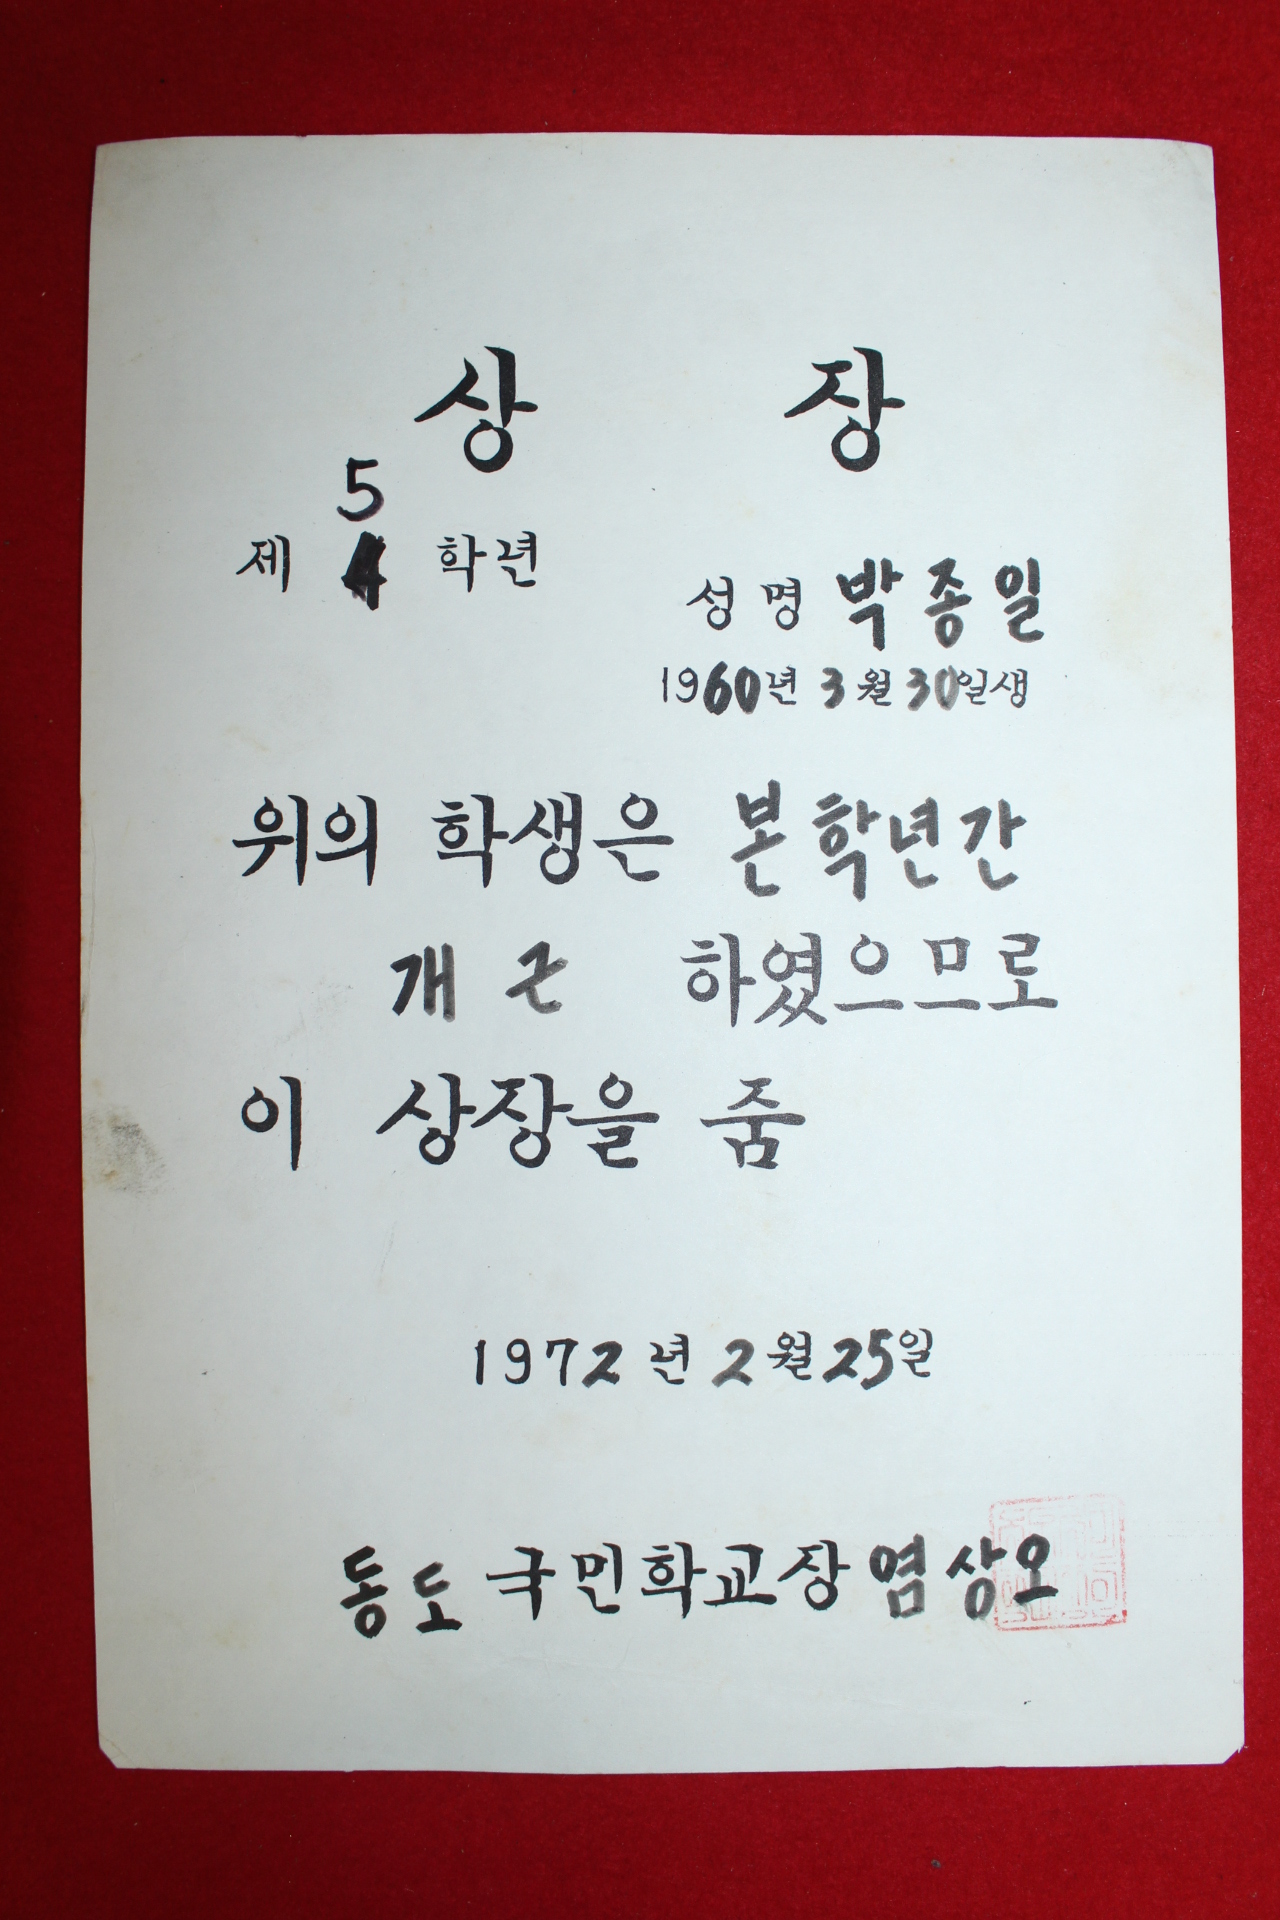 상 장
5
제 4 학년
성명 박종일
1960년 3월 30일생
위의 학생은 본학년간
개근 하였으므로
이 상장을 줌
1972년 2월 25일
동도 국민학교장 염상오